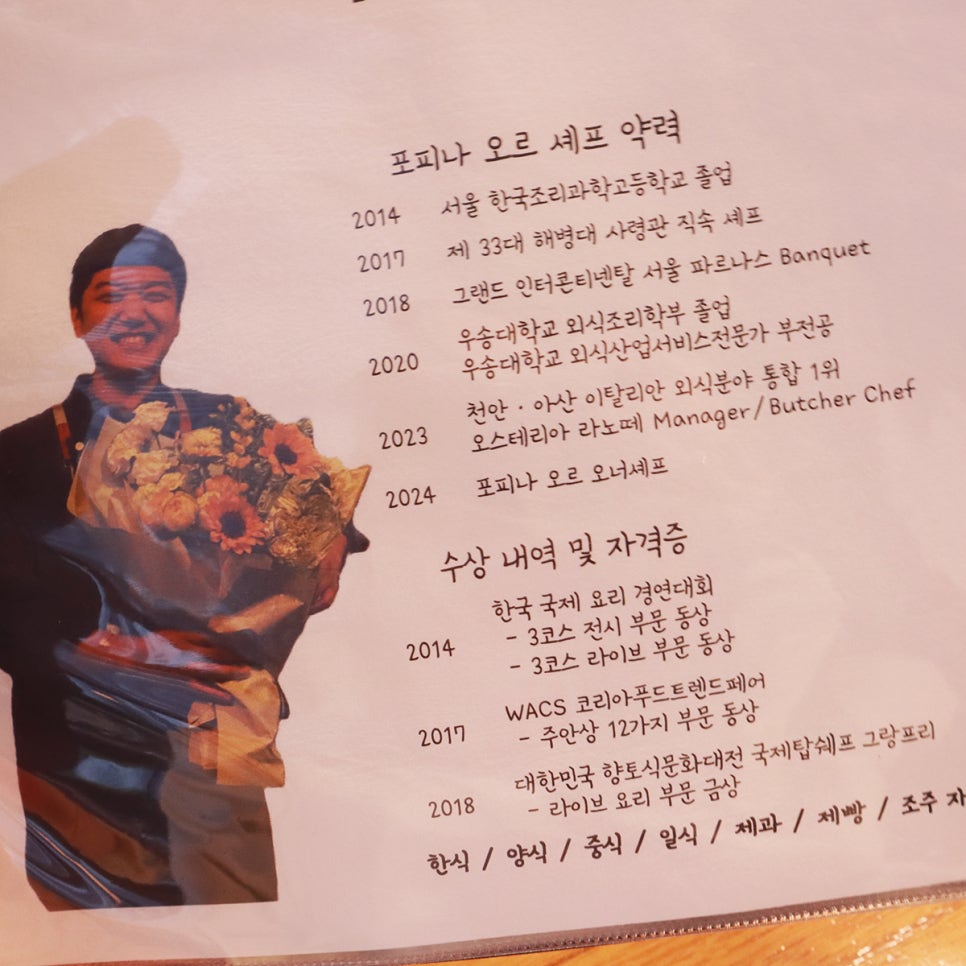 포피나 오르 셰프 약력
2014 서울 한국조리과학고등학교 졸업
2017 제 33대 해병대 사령관 직속 셰프
2018 그랜드 인터콘티넨탈 서울 파르나스 Banquet
우송대학교 외식조리학부 졸업
2020 우송대학교 외식산업서비스전문가 부전공
천안 · 아산 이탈리안 외식분야 통합 1위
2023 오스테리아 라노떼 Manager/Butcher Chef
2024 포피나 오르 오너셰프
수상 내역 및 자격증
한국 국제 요리 경연대회
2014 - 3코스 전시 부문 동상
- 3코스 라이브 부문 동상
WACS 코리아푸드트렌드페어
2017 - 주안상 12가지 부문 동상
대한민국 향토식문화대전 국제탑쉐프 그랑프리
2018 - 라이브 요리 부문 금상
한식 / 양식 / 중식 / 일식 / 제과 / 제빵 / 조주 자